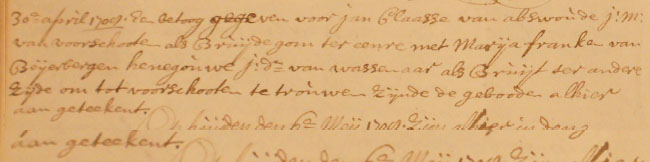 30en april 1709. de betoog gegeven voor jan Claasse van abswoude j:m:
van voorschoote als Bruijdegom ter eenre met Marija franke van
henegouwe j:d: van wassenaar als Bruijt ter andere
Zijde om tot voorschooten te trouwen Zijnde de gebooden alhier
aan geteekent.
Op huijden den Meij 1709. Zijn alhier in
aan geteekent.